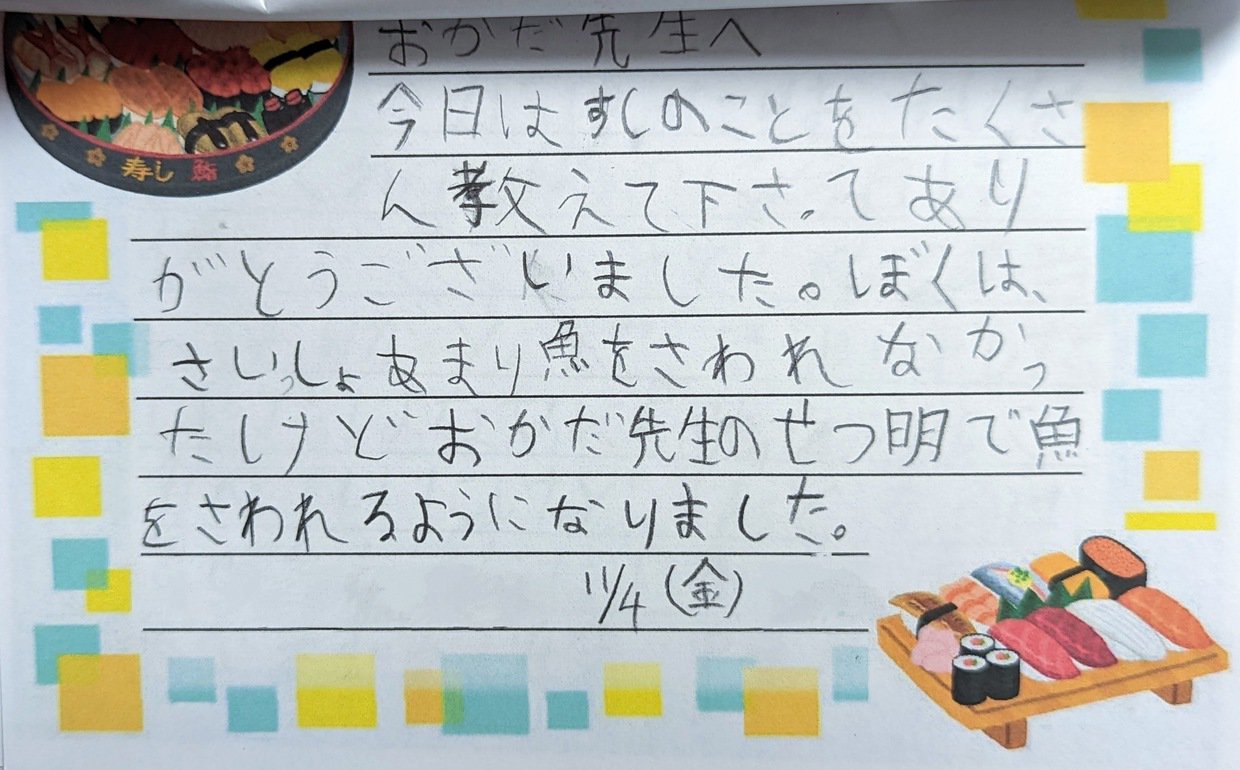 おかだ先生へ
今日はすしのことをたくさ
ん教えて下さってあり
がとうございました。ぼくは、
さいっしょあまり魚をさわれなかっ
たしけどおかだ先生のせつ明で魚
をさわれるようになりました。
11/4(金)
寿し 鮨